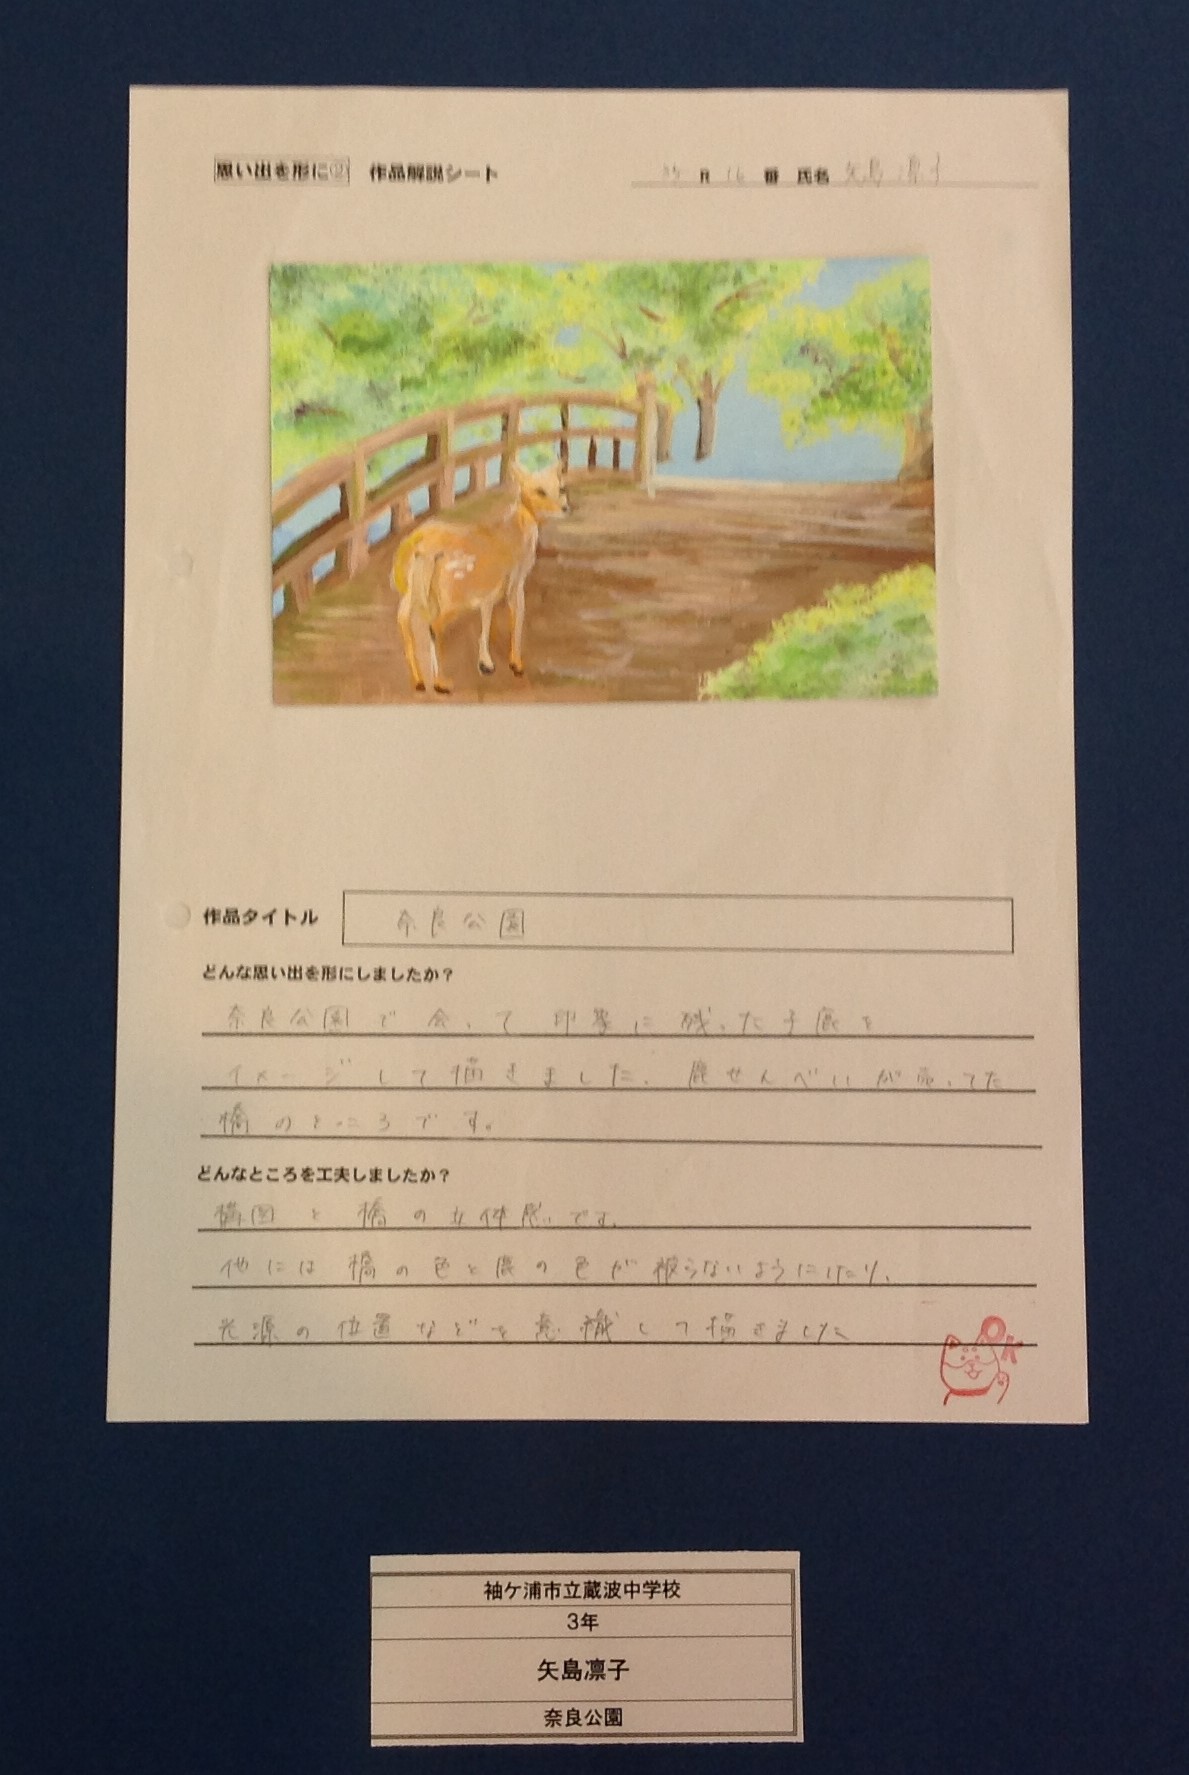 思い出を形に② 作品解説シート R 16 番 氏名 矢島 凛子
作品タイトル 奈良公園
どんな思い出を形にしましたか?
奈良公園で会って印象に残った子鹿を
イメージして描きました。鹿せんべいが売ってた
橋のところです。
どんなところを工夫しましたか?
構図と橋の立体感です。
他には橋の色と鹿の色が被らないようにしたり、
光源の位置などを意識して描きました
OK
袖ケ浦市立蔵波中学校
3年
矢島凛子
奈良公園